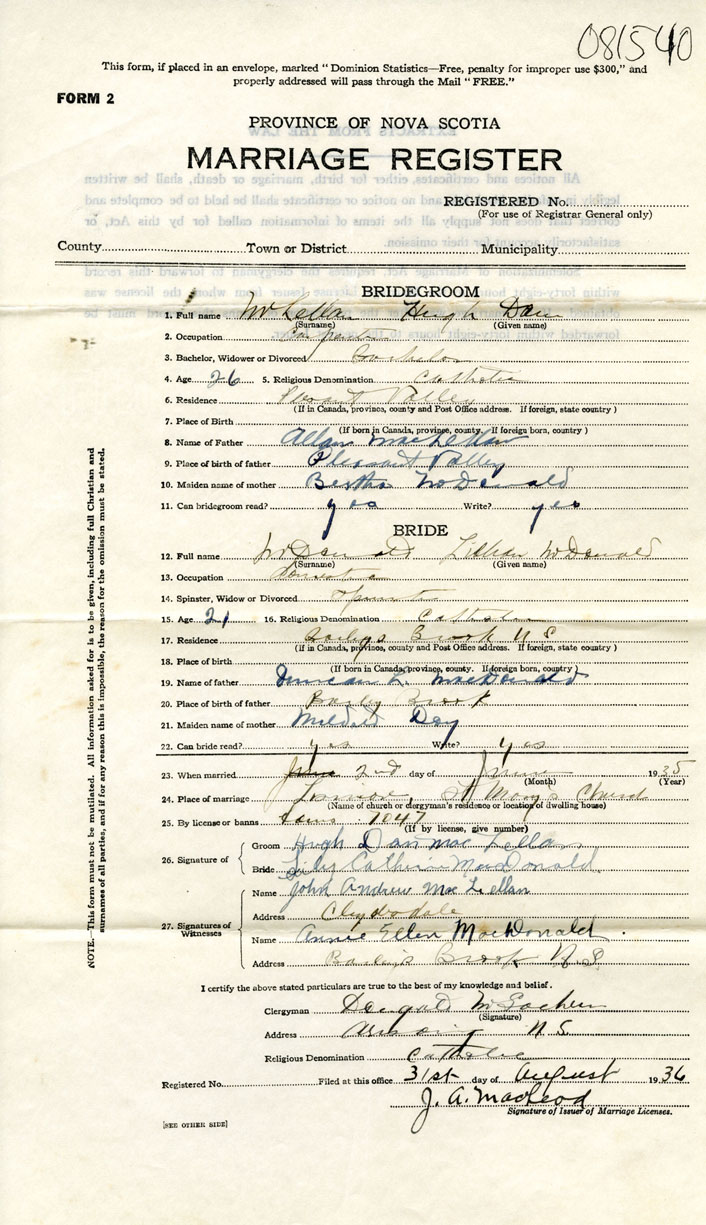 081540
This form, if placed in an envelope, marked " Dominion Statistics—Free, penalty for improper use $300," and
properly addressed will pass through the Mail " FREE."
FORM 2
PROVINCE OF NOVA SCOTIA
MARRIAGE REGISTER
REGISTERED No.
(For use of Registrar General only)
County Town or District Municipality
BRIDEGROOM
1. Full name McLellan Hugh Dan
(Surname) (Given name)
2. Occupation
3. Bachelor, Widower or Divorced Bachelor
4. Age 26 5. Religious Denomination Catholic
6. Residence Pleasant Valley
(If in Canada, province, county and Post Office address. If foreign, state country )
7. Place of Birth
(If born in Canada, province, county. If foreign born, country )
8. Name of Father Allan MacLellan
9. Place of birth of father Pleasant Valley
10. Maiden name of mother Bertha McDonald
11. Can bridegroom read? yes Write? yes
BRIDE
12. Full name McDonald Lillian McDonald
(Surname) (Given name)
13. Occupation Domestic
14. Spinster, Widow or Divorced Spinster
15. Age 21 16. Religious Denomination Catholic
17. Residence Baileys Brook N S
(If in Canada, province, county and Post Office address. If foreign, state country )
18. Place of birth
(If born in Canada, province, county. If foreign born, country )
19. Name of father Duncan R. MacDonald
20. Place of birth of father Baily Brook
21. Maiden name of mother Day
22. Can bride read? yes Write? yes
23. When married 2nd day of June 1935
(Month) (Year)
24. Place of marriage Lismore, St Mary's Church
(Name of church or clergyman's residence or location of dwelling house)
25. By license or banns 7047
(If by license, give number)
26. Signature of Groom Hugh Dan MacLellan
Bride Lily Catherine MacDonald
27. Signatures of Witnesses
Name John Andrew MacLellan
Address Clydesdale
Name Annie Ellen MacDonald
Address Baileys Brook N.S.
I certify the above stated particulars are true to the best of my knowledge and belief.
Clergyman Dougald McEachern
(Signature)
Address N.S
Religious Denomination Catholic
Registered No. Filed at this office 31st day of August 1936
J. A. MacLeod
Signature of Issuer of Marriage Licenses.
[SEE OTHER SIDE]
NOTE.—This form must not be mutilated. All information asked for is to be given, including full Christian and
surnames of all parties, and if for any reason this is impossible, the reason for the omission must be stated.